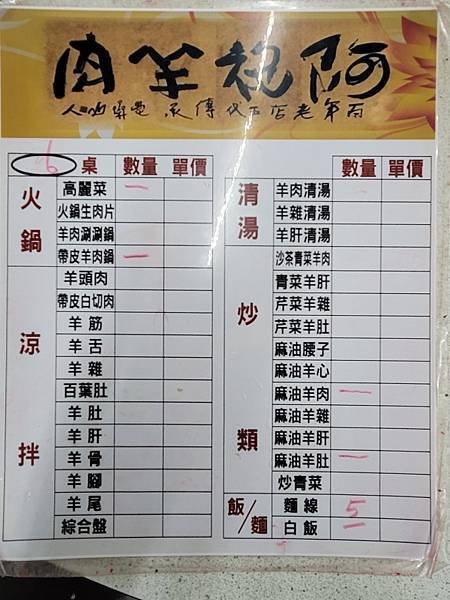 阿祝羊肉
百年老店五代傳承
6 桌 數量 單價
火鍋
高麗菜 一
火鍋生肉片
羊肉涮涮鍋
帶皮羊肉鍋 一
涼拌
羊頭肉
帶皮白切肉
羊筋
羊舌
羊雜
百葉肚
羊肚
羊肝
羊骨
羊腳
羊尾
綜合盤
數量 單價
清湯
羊肉清湯
羊雜清湯
羊肝清湯
炒類
沙茶青菜羊肉
青菜羊肝
芹菜羊雜
芹菜羊肚
麻油腰子
麻油羊心
麻油羊肉 一
麻油羊雜
麻油羊肝
麻油羊肚 一
炒青菜
飯/麵
麵線 5
白飯 一